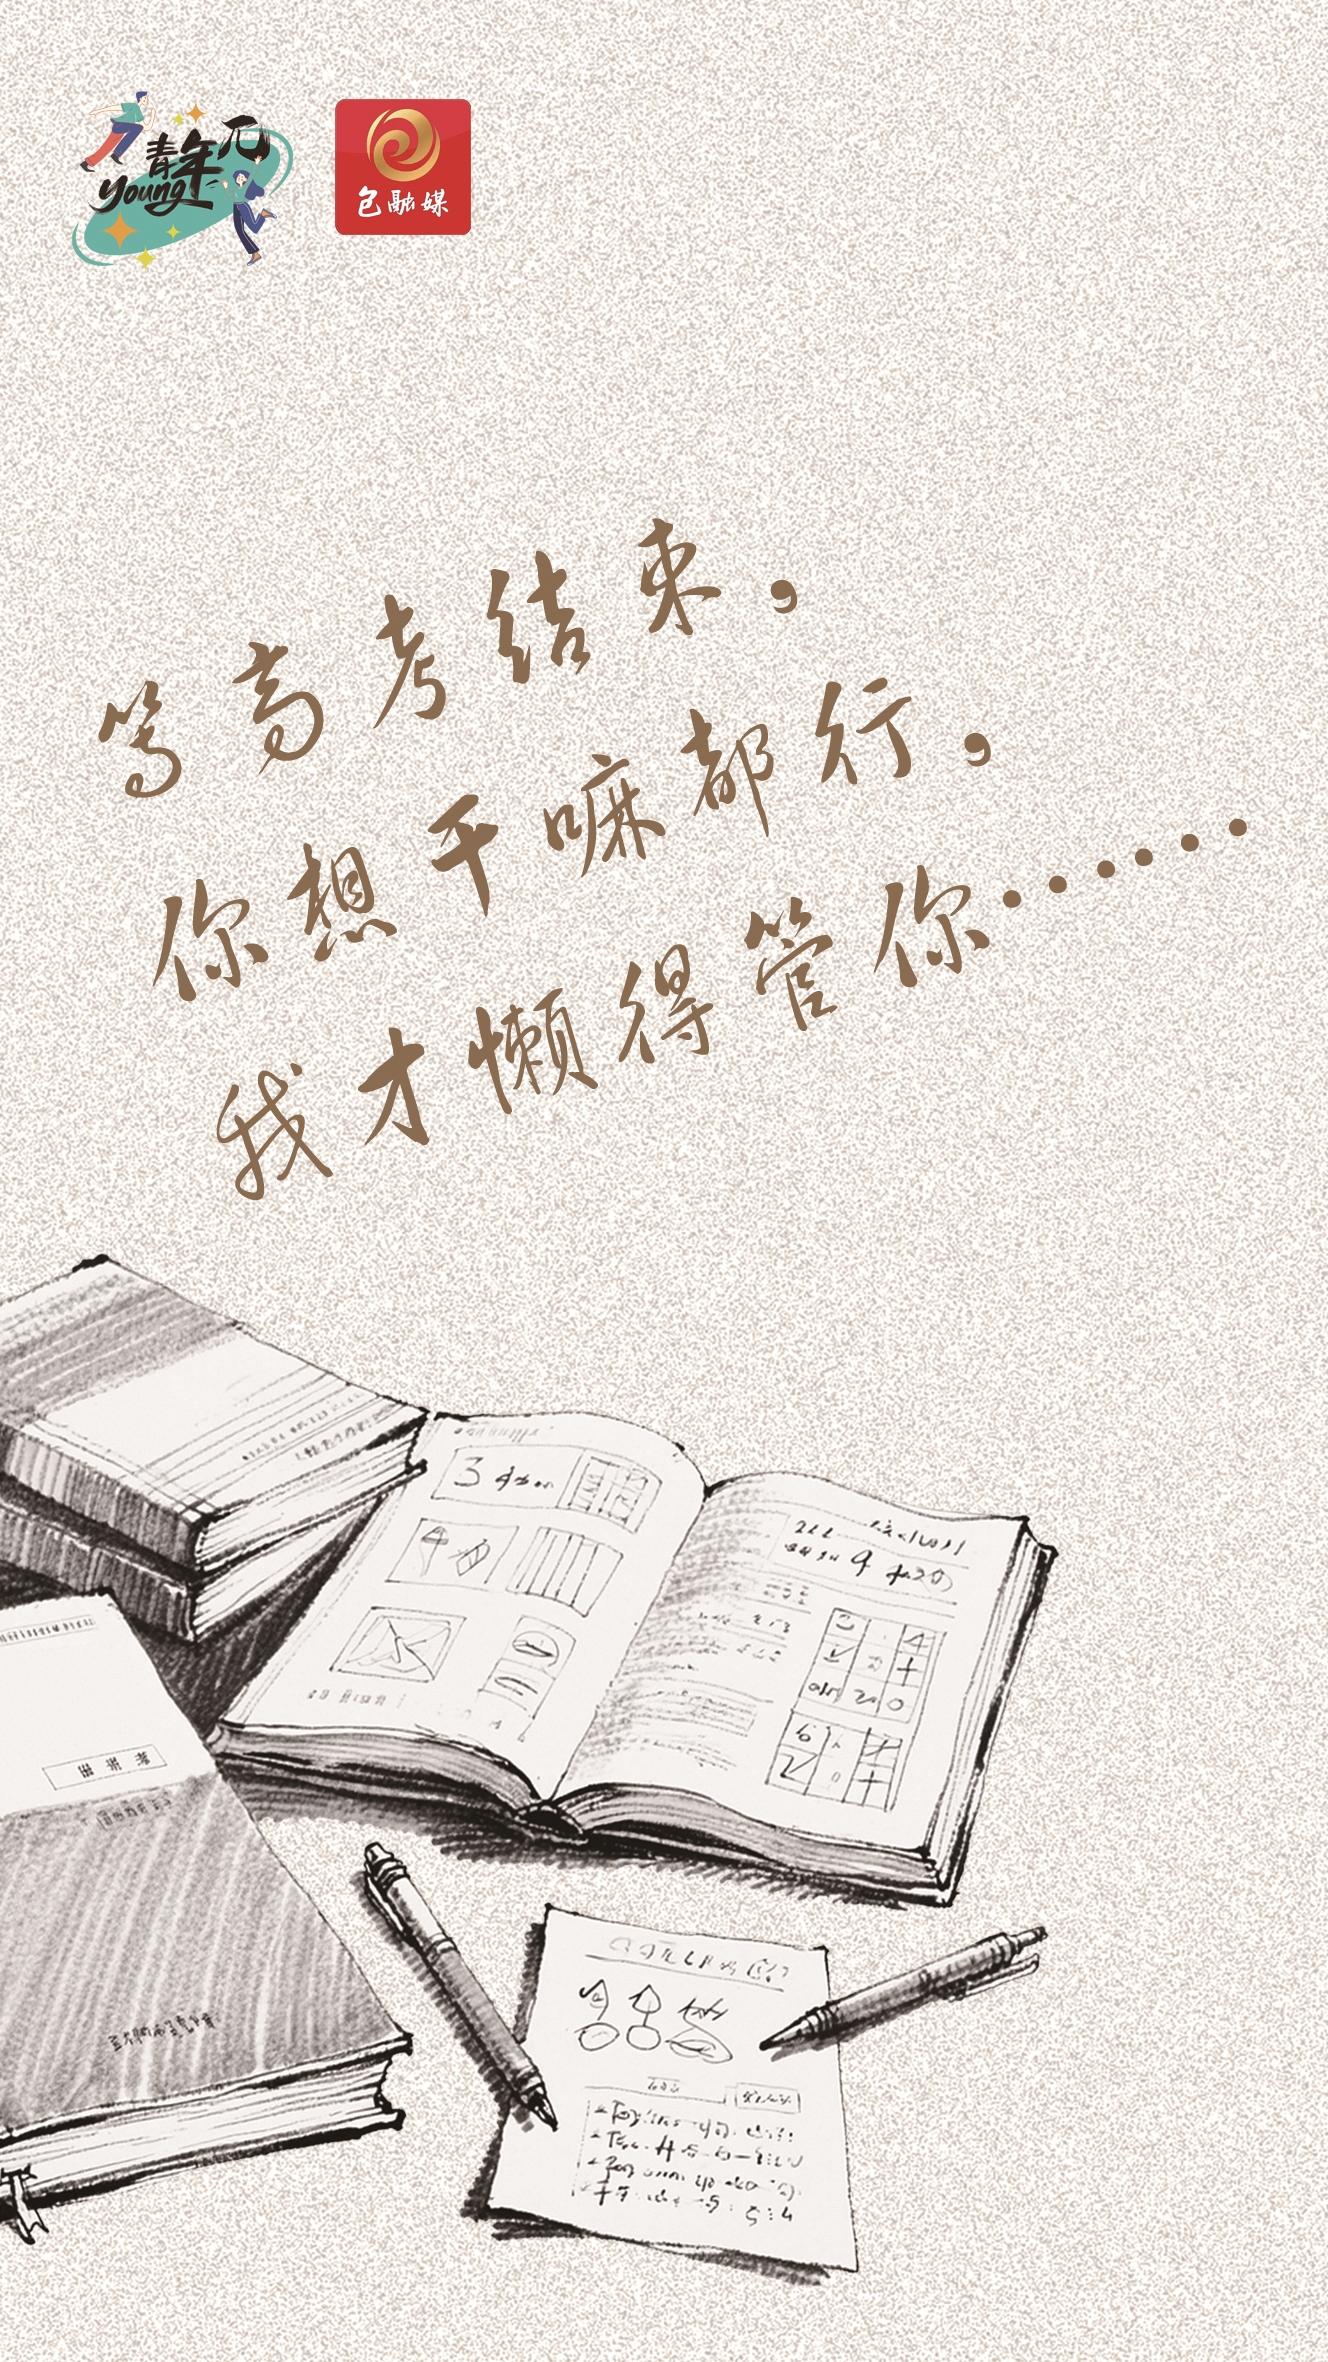 青年π
young
包融媒
等高考结束，
你想干嘛都行，
我才懒得管你……